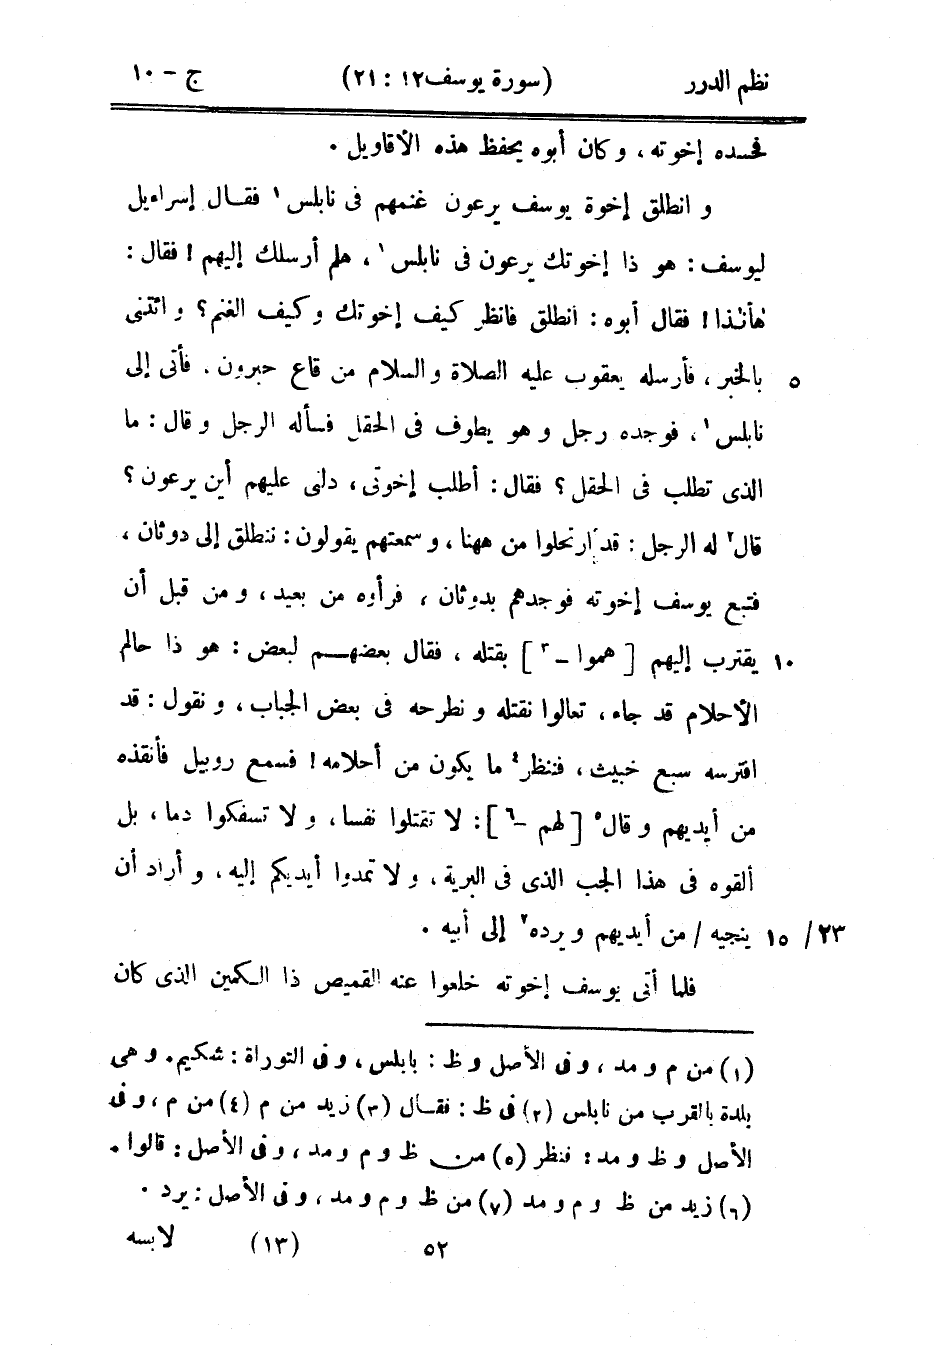 نظم الدرر (سورة يوسف ١٢ : ٢١) ج - ١٠
فحسده إخوته، و كان أبوه يحفظ هذه الأقاويل .
و انطلق إخوة يوسف يرعون غنمهم فى نابلس١ فقال إسراءيل
ليوسف: هو ذا إخوتك يرعون فى نابلس١، هلم أرسلك إليهم! فقال:
هأنذا! فقال أبوه: انطلق فانظر كيف إخوتك و كيف الغنم؟ و ائتنى
٥ بالخبر، فأرسله يعقوب عليه الصلاة و السلام من قاع حبرون. فأتى إلى
نابلس١، فوجده رجل و هو يطوف فى الحقل فسأله الرجل و قال: ما
الذى تطلب فى الحقل؟ فقال: أطلب إخوتى، دلنى عليهم أين يرعون؟
قال٢ له الرجل: قد ارتحلوا من ههنا، و سمعتهم يقولون: ننطلق إلى دوثان،
فتبع يوسف إخوته فوجدهم بدوثان، فرأوه من بعيد، و من قبل أن
١٠ يقترب إليهم [ هموا - ٣ ] بقتله، فقال بعضهم لبعض: هو ذا حالم
الأحلام قد جاء، تعالوا نقتله و نطرحه فى بعض الجباب، و نقول: قد
افترسه سبع خبيث، فننظر٤ ما يكون من أحلامه! فسمع روبيل فأنقذه
من أيديهم و قال٥ [ لهم - ٦ ]: لا تقتلوا نفسا، و لا تسفكوا دما، بل
ألقوه فى هذا الجب الذى فى البرية، و لا تمدوا أيديكم إليه، و أراد أن
٢٣/ ١٥ ينجيه / من أيديهم و يرده٧ إلى أبيه .
فلما أتى يوسف إخوته خلعوا عنه القميص ذا الكمين الذى كان
(١) من م و مد، و فى الأصل و ظ: بابلس، و فى التوراة: شكيم. و هى
بلدة بالقرب من نابلس (٢) فى ظ: فقال (٣) زيد من م (٤) من م، و فى
الأصل و ظ و مد: فنظر (٥) من ظ و م و مد، و فى الأصل: قالوا .
(٦) زيد من ظ و م و مد (٧) من ظ و م و مد، و فى الأصل: يرد .
٥٢ (١٣) لابسه